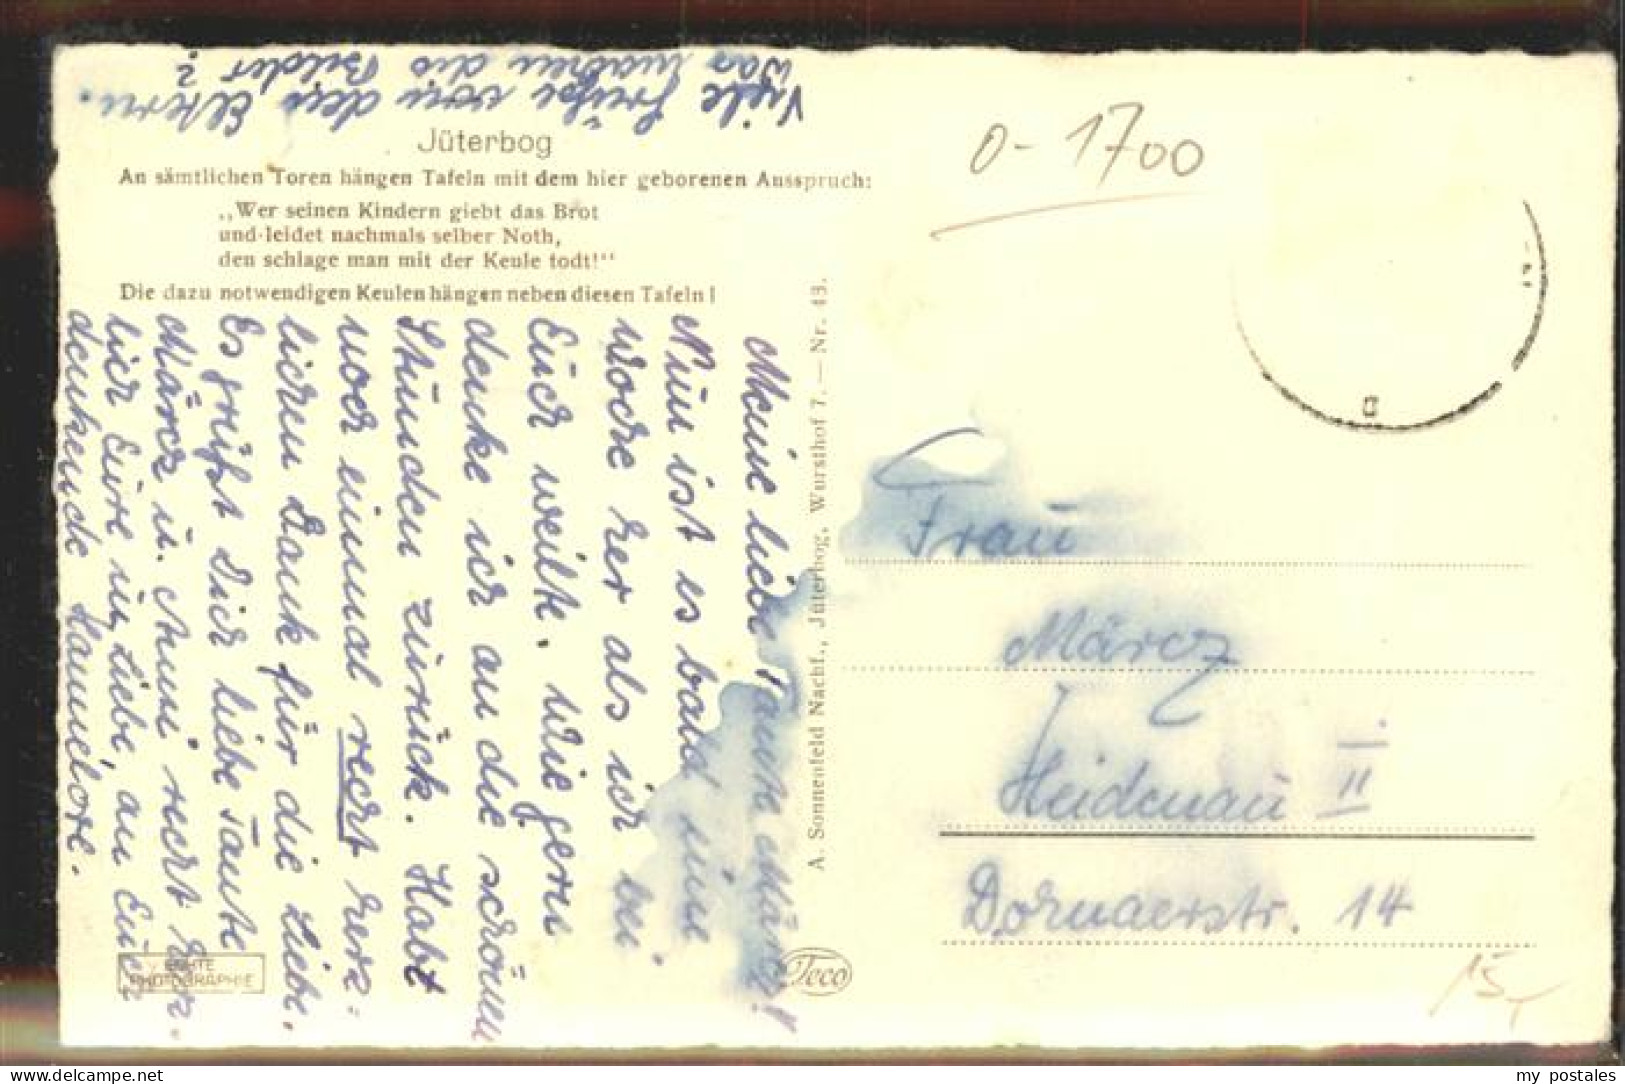 Viele Grüße von den Eltern.
Was machen die Bilder?
Jüterbog
An sämtlichen Toren hängen Tafeln mit dem hier geborenen Ausspruch:
„Wer seinen Kindern giebt das Brot
und leidet nachmals selber Noth,
den schlage man mit der Keule todt!“
Die dazu notwendigen Keulen hängen neben diesen Tafeln!
Meine liebe Tante März!
Nun ist es bald eine
Woche her als ich bei
Euch weilte. Wie gern
denke ich an die schönen
Stunden zurück. Habt
noch einmal recht herz-
lichen Dank für die Liebe.
Es grüßt Dich liebe Tante
Märcz u. Anni recht herz-
lich Eure in Liebe, an Euch
denkende Hannelore.
A. Sonnenfeld Nachf., Jüterbog, Wursthof 7. — Nr. 43.
ECHTE
PHOTOGRAPHIE
Teco
0-1700
Frau
Märcz
Heidenau II
Dornaerstr. 14
15,-
my postales